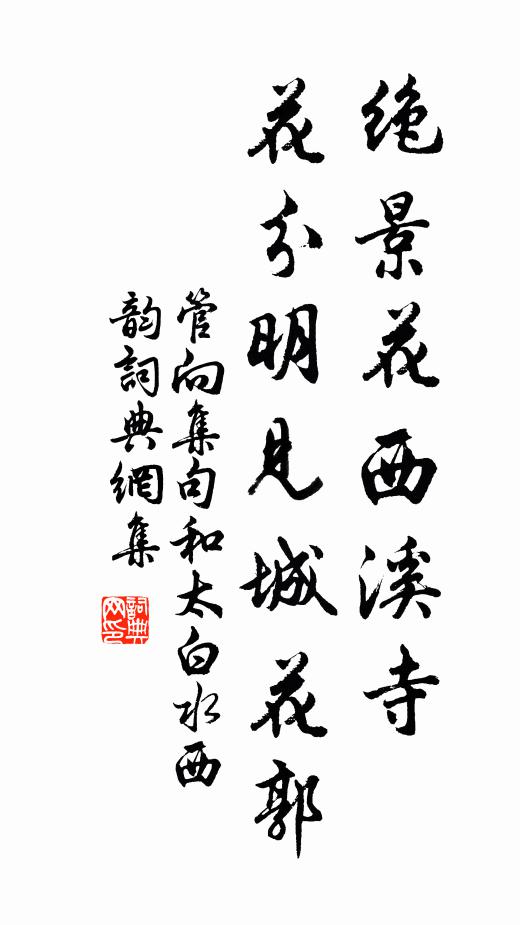 绝景花西溪寺
花分明见城花郭
管向集句和太白水西
韵詞典網集
詞典网印